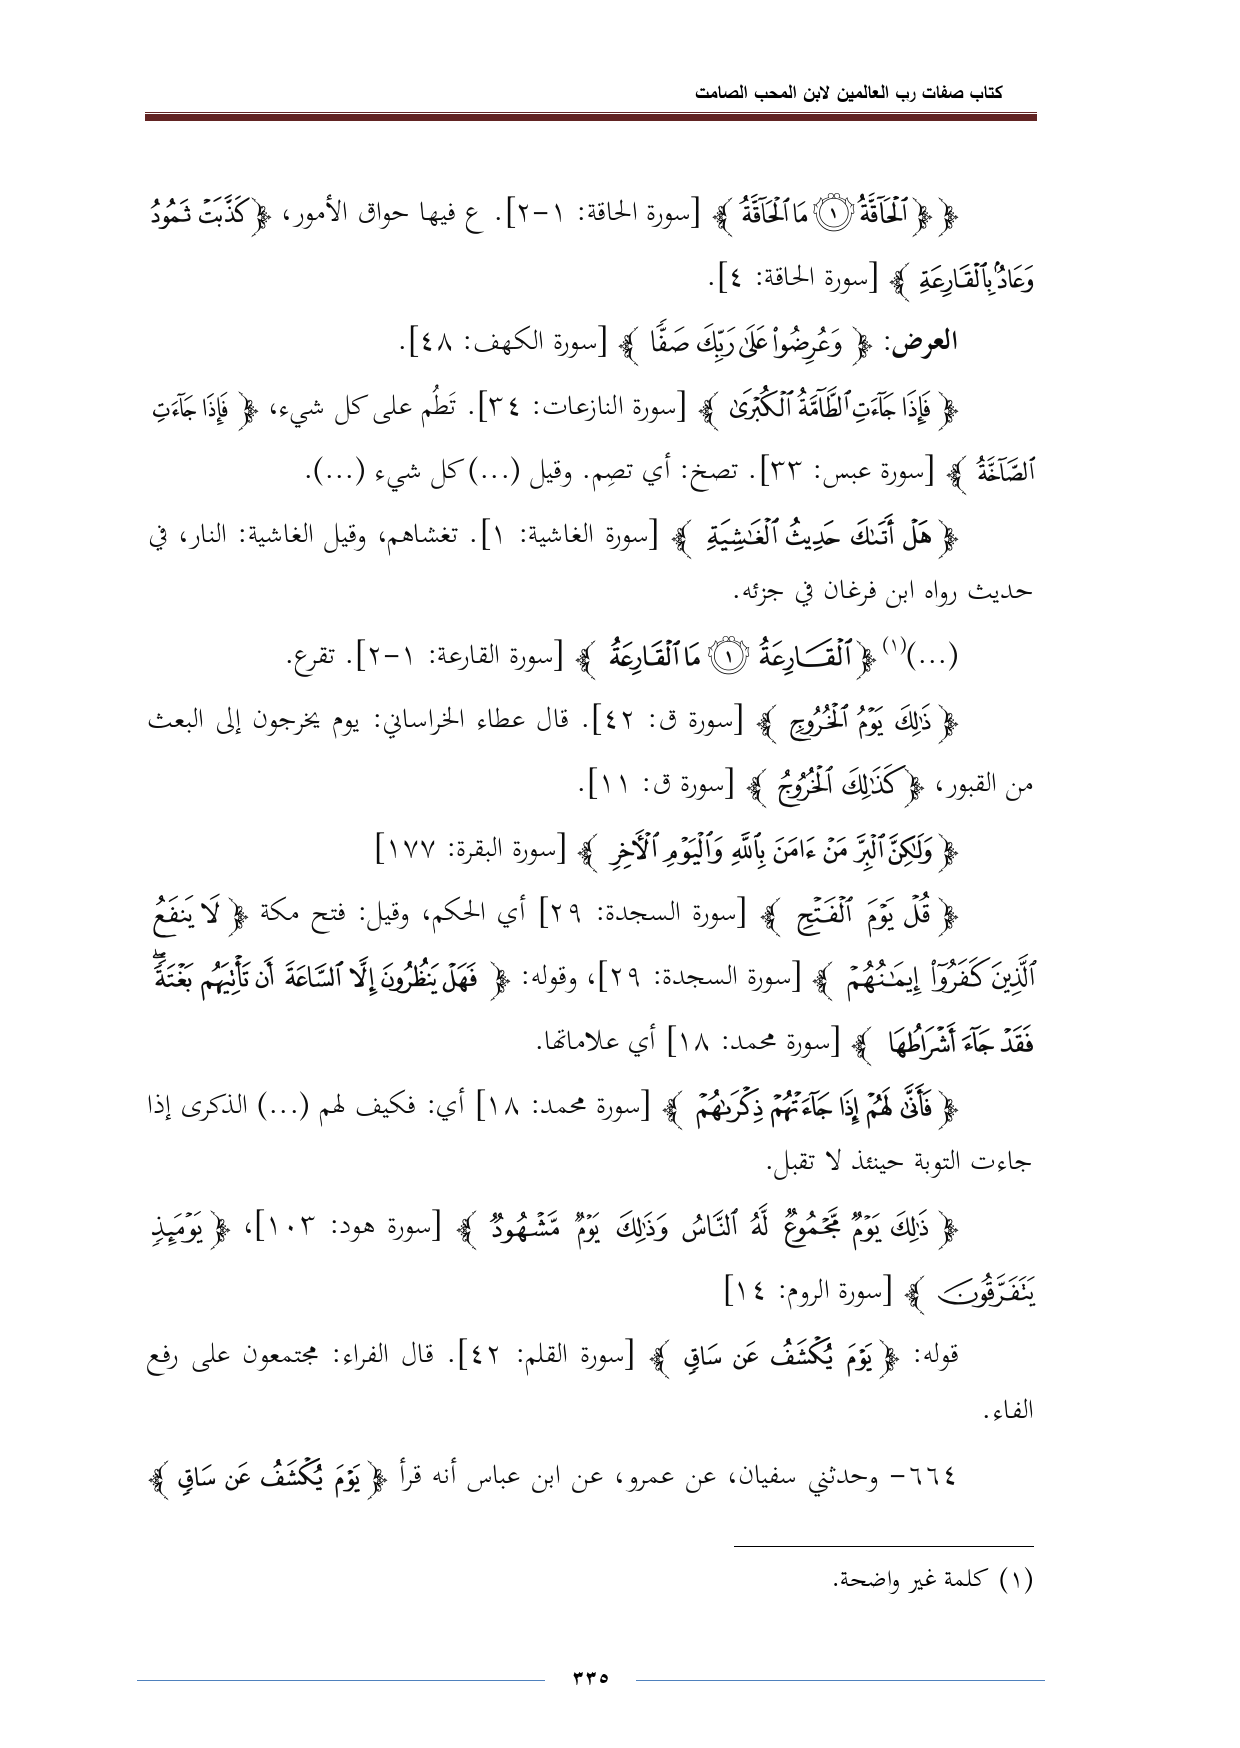 كتاب صفات رب العالمين لابن المحب الصامت
﴿ ﴿ ٱلۡحَآقَّةُ ١ مَا ٱلۡحَآقَّةُ ﴾ [سورة الحاقة: ١-٢]. ع فيها حواق الأمور، ﴿ كَذَّبَتۡ ثَمُودُ
وَعَادُۢ بِٱلۡقَارِعَةِ ﴾ [سورة الحاقة: ٤].
العرض: ﴿ وَعُرِضُواْ عَلَىٰ رَبِّكَ صَفّٗا ﴾ [سورة الكهف: ٤٨].
﴿ فَإِذَا جَآءَتِ ٱلطَّآمَّةُ ٱلۡكُبۡرَىٰ ﴾ [سورة النازعات: ٣٤]. تَطُم على كل شيء، ﴿ فَإِذَا جَآءَتِ
ٱلصَّآخَّةُ ﴾ [سورة عبس: ٣٣]. تصخ: أي تصِم. وقيل (...) كل شيء (...).
﴿ هَلۡ أَتَىٰكَ حَدِيثُ ٱلۡغَٰشِيَةِ ﴾ [سورة الغاشية: ١]. تغشاهم، وقيل الغاشية: النار، في
حديث رواه ابن فرغان في جزئه.
(...)(١) ﴿ ٱلۡقَارِعَةُ ١ مَا ٱلۡقَارِعَةُ ﴾ [سورة القارعة: ١-٢]. تقرع.
﴿ ذَٰلِكَ يَوۡمُ ٱلۡخُرُوجِ ﴾ [سورة ق: ٤٢]. قال عطاء الخراساني: يوم يخرجون إلى البعث
من القبور، ﴿ كَذَٰلِكَ ٱلۡخُرُوجُ ﴾ [سورة ق: ١١].
﴿ وَلَٰكِنَّ ٱلۡبِرَّ مَنۡ ءَامَنَ بِٱللَّهِ وَٱلۡيَوۡمِ ٱلۡأٓخِرِ ﴾ [سورة البقرة: ١٧٧]
﴿ قُلۡ يَوۡمَ ٱلۡفَتۡحِ ﴾ [سورة السجدة: ٢٩] أي الحكم، وقيل: فتح مكة ﴿ لَا يَنفَعُ
ٱلَّذِينَ كَفَرُوٓاْ إِيمَٰنُهُمۡ ﴾ [سورة السجدة: ٢٩]، وقوله: ﴿ فَهَلۡ يَنظُرُونَ إِلَّا ٱلسَّاعَةَ أَن تَأۡتِيَهُم بَغۡتَةٗۖ
فَقَدۡ جَآءَ أَشۡرَاطُهَا ﴾ [سورة محمد: ١٨] أي علاماتها.
﴿ فَأَنَّىٰ لَهُمۡ إِذَا جَآءَتۡهُمۡ ذِكۡرَىٰهُمۡ ﴾ [سورة محمد: ١٨] أي: فكيف لهم (...) الذكرى إذا
جاءت التوبة حينئذ لا تقبل.
﴿ ذَٰلِكَ يَوۡمٞ مَّجۡمُوعٞ لَّهُ ٱلنَّاسُ وَذَٰلِكَ يَوۡمٞ مَّشۡهُودٞ ﴾ [سورة هود: ١٠٣]، ﴿ يَوۡمَئِذٖ
يَتَفَرَّقُونَ ﴾ [سورة الروم: ١٤]
قوله: ﴿ يَوۡمَ يُكۡشَفُ عَن سَاقٖ ﴾ [سورة القلم: ٤٢]. قال الفراء: مجتمعون على رفع
الفاء.
٦٦٤- وحدثني سفيان، عن عمرو، عن ابن عباس أنه قرأ ﴿ يَوۡمَ يُكۡشَفُ عَن سَاقٖ ﴾
(١) كلمة غير واضحة.
٣٣٥